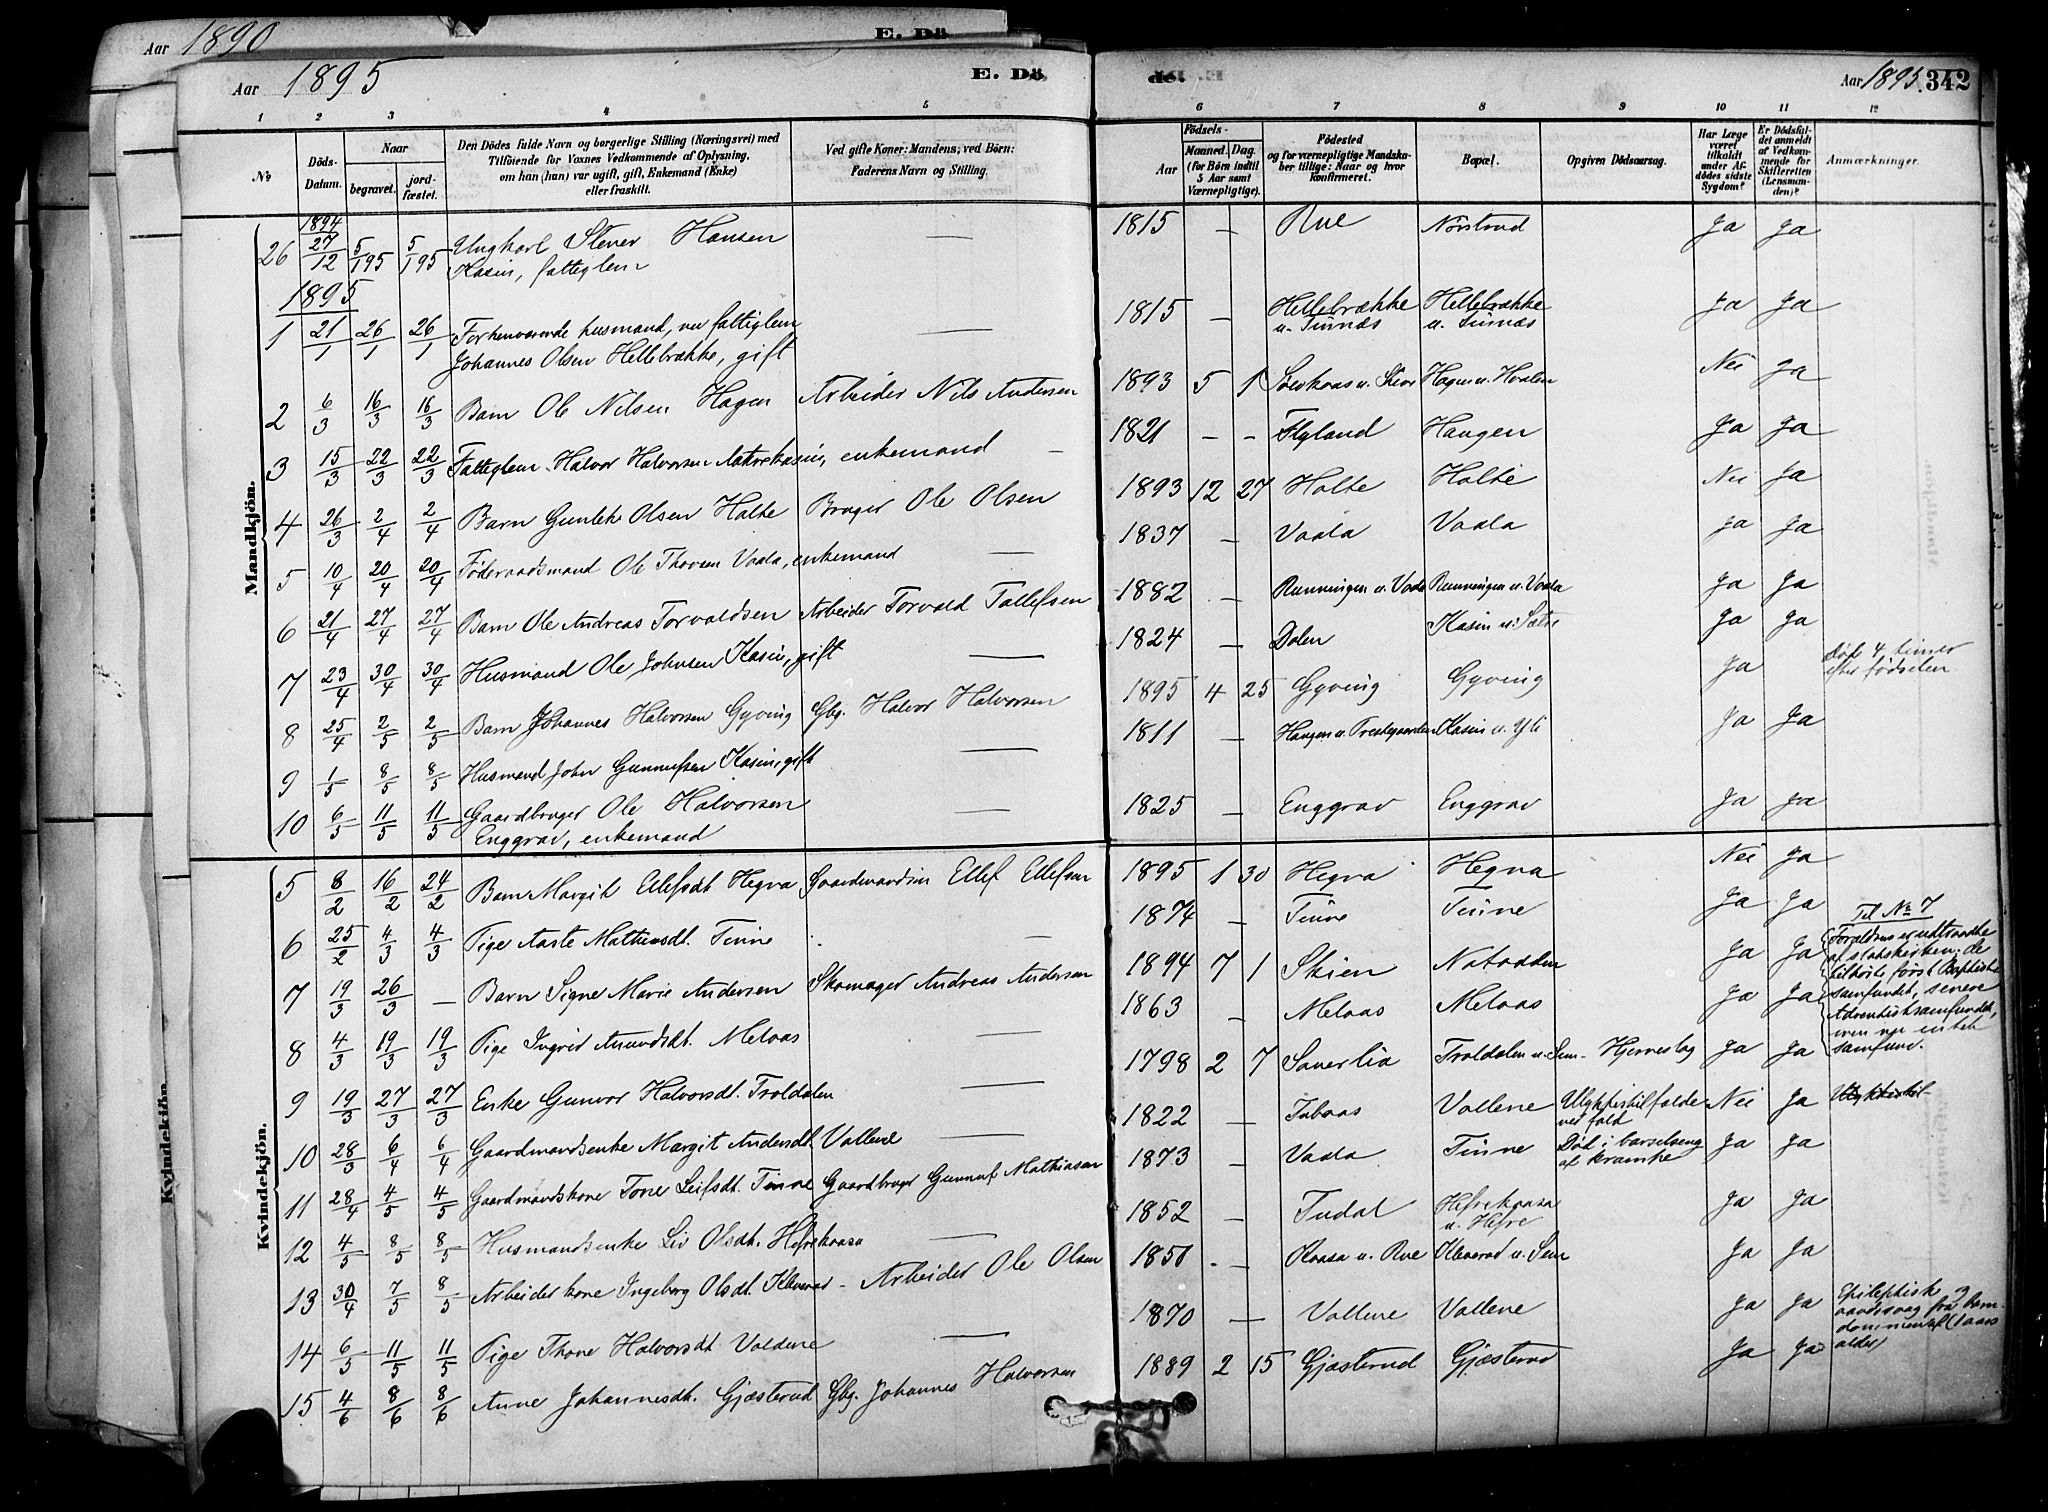 Aar 1890
E. Dö
Aar 1895
E. Dö
de.
Aar 1895. 342
1 2 3 4 5 6 7 8 9 10 11 12
No
Döds-Datum.
Naar
begravet.
jordfæstet.
Den Dödes fulde Navn og borgerlige Stilling (Næringsvei) med
Tilföiende for Voxnes Vedkommende af Oplysning,
om han (hun) var ugift, gift, Enkemand (Enke)
eller fraskilt.
Ved gifte Koner: Mandens; ved Börn:
Faderens Navn og Stilling.
Födsels-
Aar
Maaned. Dag.
(for Börn indtil
5 Aar samt
Værnepligtige).
Födested
og for værnepligtige Mandska-
ber tillige: Naar og hvor
konfirmeret.
Bopæl.
Opgiven Dödsaarsag.
Har Læge
været
tilkaldt
under Af-
dödes sidste
Sygdom?
Er Dödsfal-
det anmeldt
af Vedkom-
mende for
Skifteretten
(Lensman-
den)?
Anmærkninger.
Mandkjön.
1894
26 27/12 5/1 95 5/1 95 Ungkarl Stener Hansen — 1815 — Rue Ja Ja
Kasin, fattiglem
1895
1 21/1 26/1 26/1 Forhenværende husmand, nu fattiglem — 1815 — Hellebrække Hellebrække Ja Ja
Johannes Olsen Hellebrække, gift u. Tinnæs u. Tinnæs
2 6/3 16/3 16/3 Barn Ole Nilsen Hagen Arbeider Nils Andersen 1893 5 1 Hagen u. Hvalen Nei Ja
3 15/3 22/3 22/3 Fattiglem Halvor Halvorsen enkemand — 1821 - - Flyland Haugen Ja Ja
4 26/3 2/4 2/4 Barn Gunlek Olsen Holte Bruger Ole Olsen 1893 12 27 Holte Holte Nei Ja
5 10/4 20/4 20/4 Föderaadsmand Ole Thorsen Vaala, enkemand — 1837 — Vaala Vaala Ja Ja
6 21/4 27/4 27/4 Barn Ole Andreas Torvaldsen Arbeider Torvald Tollefsen 1882 . — Runningen u. Vaala Runningen u. Vaala Ja Ja
7 23/4 30/4 30/4 Husmand Ole Johnsen Kasin, gift — 1824 — Dalen Kasin u. Sætre Ja Ja
8 25/4 2/5 2/5 Barn Johannes Halvorsen Gyving Gbg. Halvor Halvorsen 1895 4 25 Gyving Gyving Ja Död 4 timer
efter födselen
9 1/5 8/5 8/5 Husmand John Gunnufsen Kasin, gift — 1811 — Kasin u. Yli Ja Ja
10 6/5 11/5 11/5 Gaardbruger Ole Halvorsen — 1825 — Enggrav Enggrav Ja Ja
Enggrav, enkemand
Kvindekjön.
5 8/2 16/2 24/2 Barn Margit Ellefsdt Hegna Gaardmandsön Ellef Ellefsen 1895 1 30 Hegna Hegna Nei Ja
6 25/2 4/3 4/3 Pige Aaste Mathisdt. Tinne — 1874 — Tinne Tinne Ja Ja
7 19/3 26/3 — Barn Signe Marie Andersen Skomager Andreas Andersen 1894 7 1 Skien Notodden Ja Ja
Til No 7
Forældrene er udtraadte
af statskirken; de
tilhörte först Baptist-
samfundet, senere
Adventistsamfundet,
men nu intet
samfund.
8 4/3 19/3 19/3 Pige Ingrid Amundsdt. Melaas — 1863 — Melaas Melaas Ja Ja
9 19/3 27/3 27/3 Enke Gunvor Halvorsdt. Troldalen — 1798 2 7 Saverlia Troldalen u. Sem Hjerneslag Ja Ja
10 28/3 6/4 6/4 Gaardmandsenke Margit Andersdt. Vallene — 1822 — Vallene Ulykkestilfælde Nei Ja
ved fald
11 28/4 4/5 4/5 Gaardmandskone Tone Leifsdt. Tinne Gaardbruger Gunnuf Mathiasen 1873 — Vaala Tinne Död i barselseng Ja Ja
af krampe
12 4/5 8/5 8/5 Husmandsenke Liv Olsdt. Hefrekaasa — 1852 — Tudal Hefrekaasa Ja Ja
u. Hefre
13 30/4 7/5 8/5 Arbeiderkone Ingeborg Olsdt. Kleverud - Arbeider Ole Olsen 1850 . — Kaasa u. Rue Kleverud u. Sem Ja Ja
14 6/5 11/5 11/5 Pige Thone Halvorsdt Valdene — 1870 — Vallene Vallene Ja Ja Epileptisk og
aandssvag fra
15 4/6 8/6 8/6 Anne Johannesdt. Gjæsterud Gbg. Johannes Halvorsen 1889 2 15 Gjæsterud Gjæsterud Ja Ja